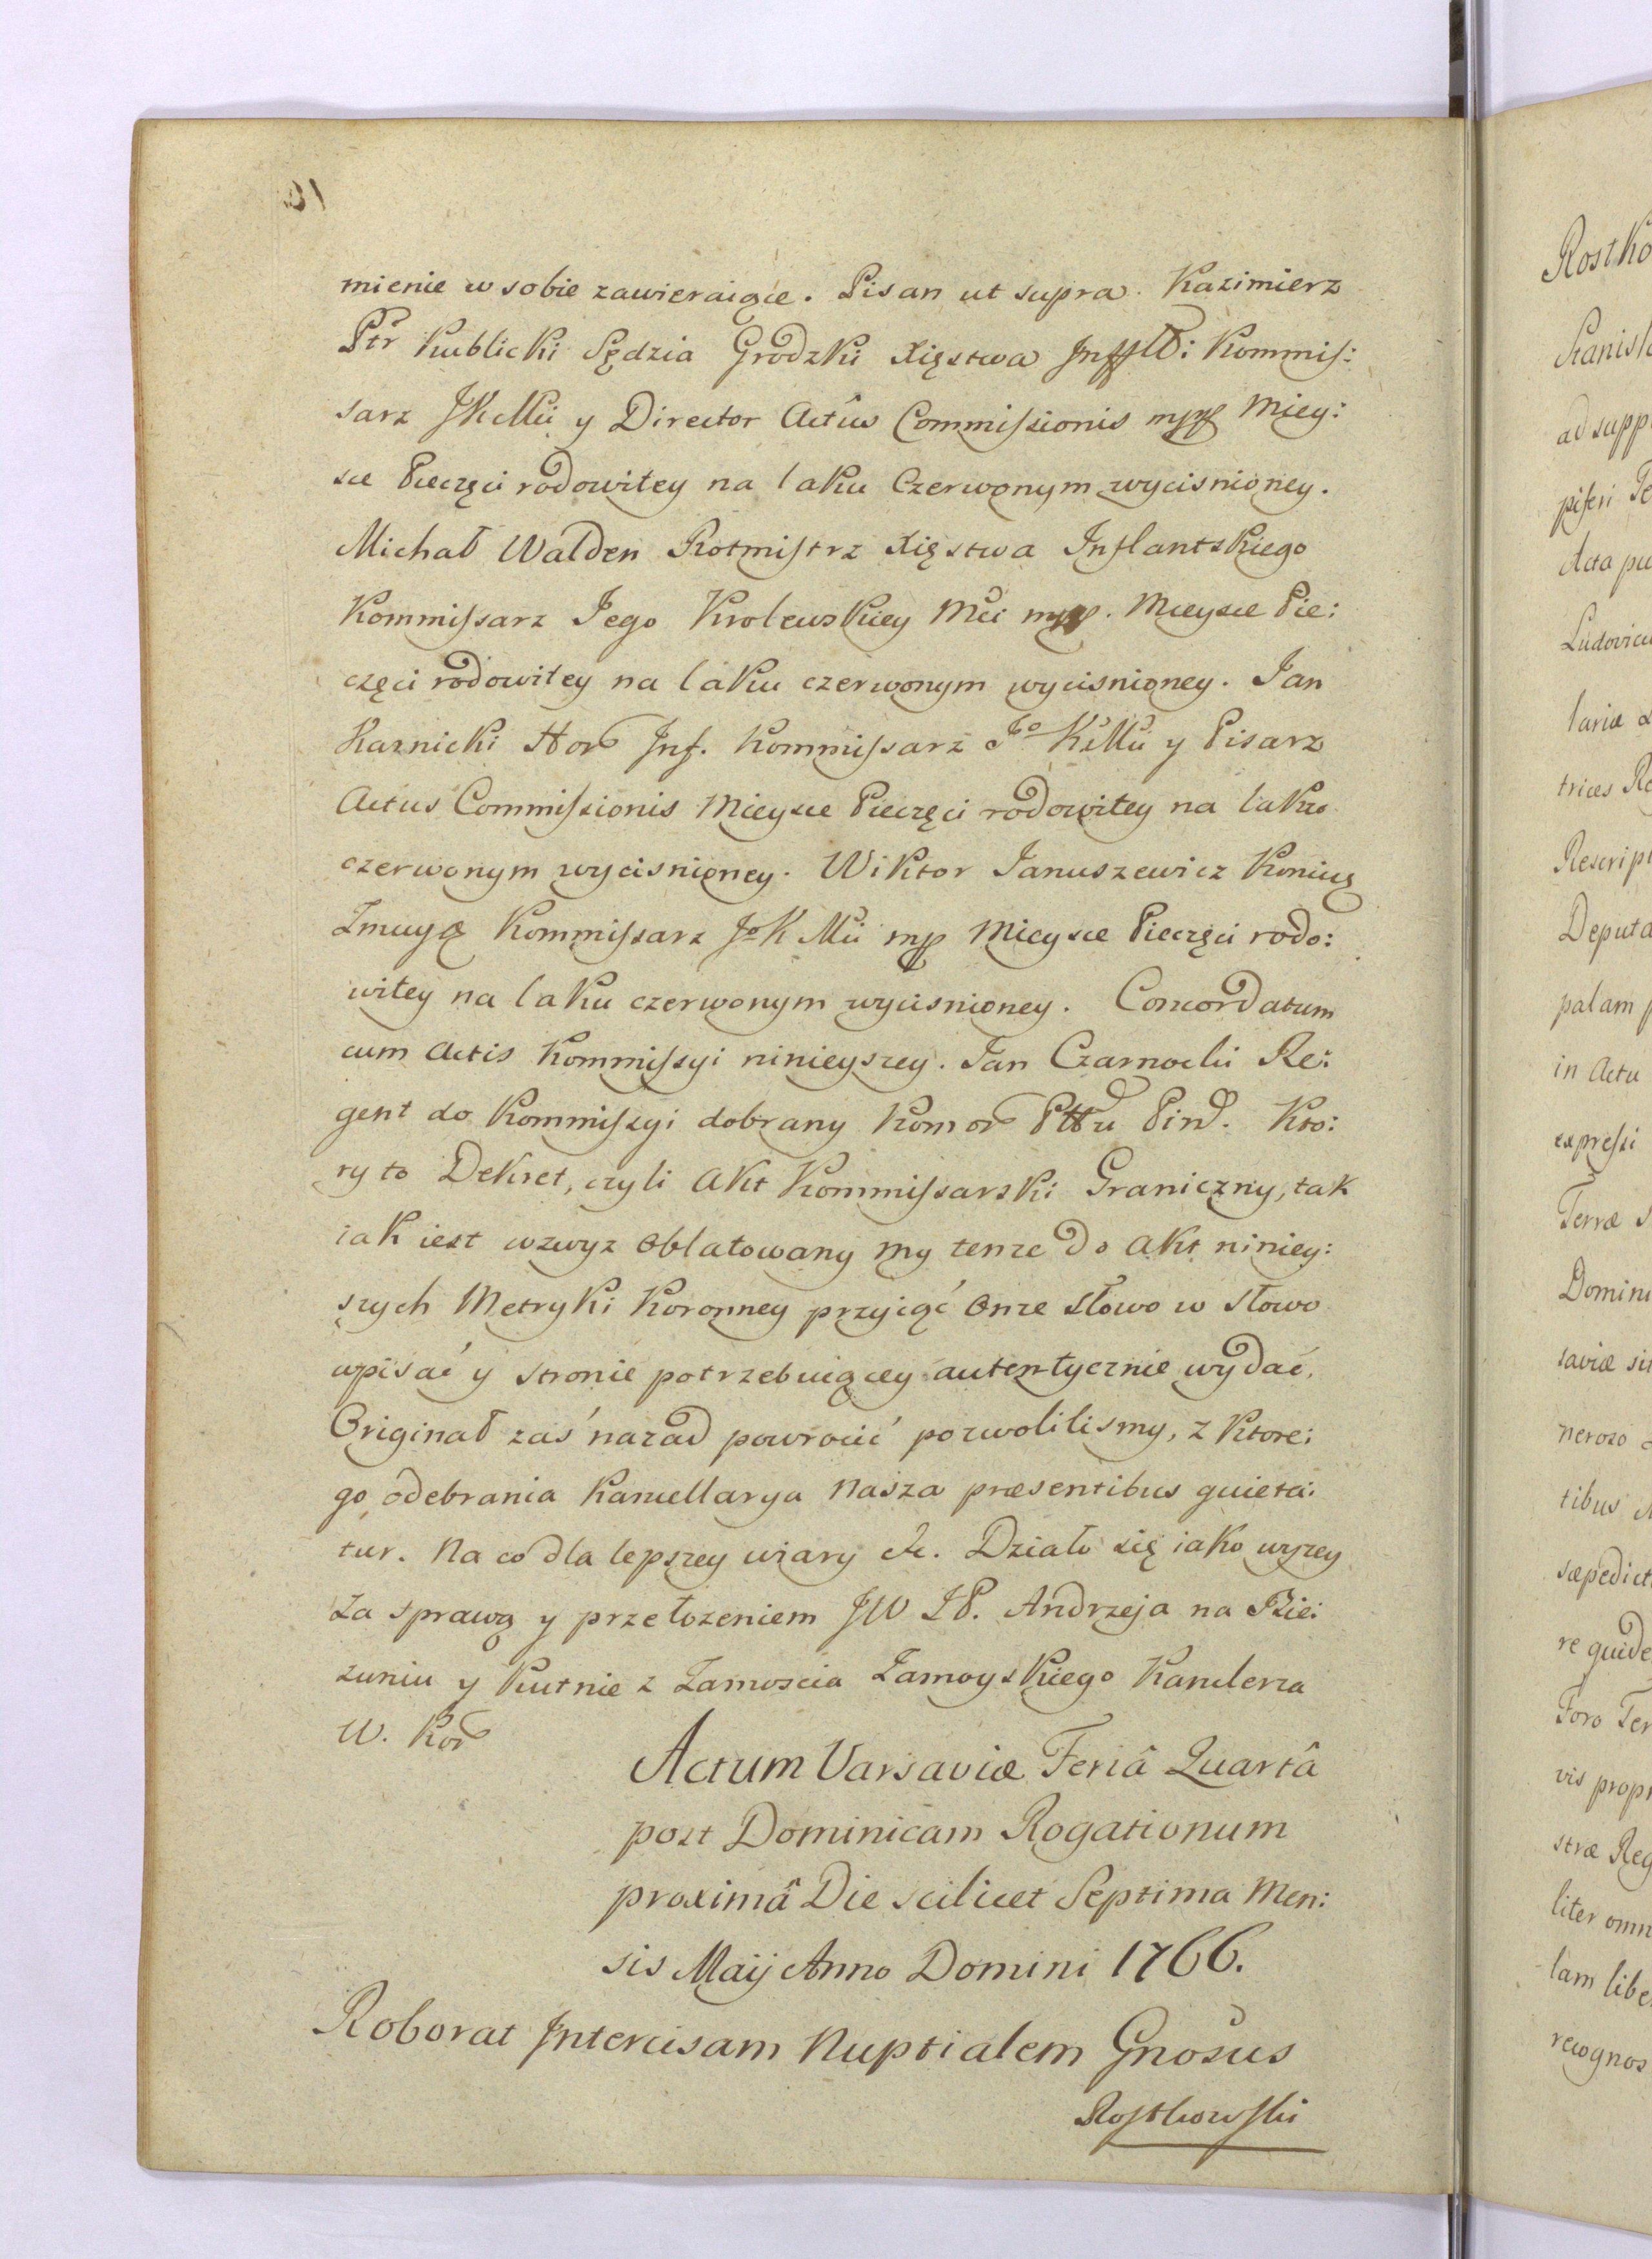 mienie w sobie zawieraiące. Pisan ut supra. Kazimierz
Ptr Kublicki Sędzia Grodzki Xięstwa Kommis:
sarz JKMci y Director Actûs Commissionis mpp Miey:
sce Pieczęci rodowitey na laku Czerwonym wycisnioney.
Michał Walden Rotmistrz Xięstwa Inflantskiego
Kommissarz Jego Krolewskiey Mci mpp. Mieysce Pie:
częci rodowitey na laku czerwonym wycisnioney. Jan
Karnicki Hor Inf. Kommissarz Jo KMci y Pisarz
Actus Commissionis Mieysce Pieczęci rodowitey na laku
czerwonym wycisnioney. Wiktor Januszewicz Koniuę
Zmuyð Kommissarz Jo K Mci mp Mieysce Pieczęci rodo:
witey na laku czerwonym wycisnioney. Concordatum
cum Actis Kommissyi ninieyszey. Jan Czarnocki Re:
gent do Kommissyi dobrany Komor Pttu Pin. Kto:
ry to Dekret, czyli Akt Kommissarski Graniczny, tak
iak iest wzwyz oblatowany my tenze do Akt niniey:
szych Metryki Koronney przyiąć onze słowo w słowo
wpisać y stronie potrzebuiącey autentycznie wydać.
Originał zaś nazad powrocić pozwolilismy, z ktore:
go odebrania Kancellarya Nasza præsentibus quieta:
tur. Na co dla lepszey wiary &c. Działo się iako wyzey
Za sprawą y przełozeniem JW JP. Andrzeja na Bie:
zuniu y Kutnie z Zamoscia Zamoyskiego Kanclerza
W. Kor
Actum Varsaviæ Feriâ Quartâ
post Dominicam Rogationum
proximâ Die scilicet Septima Men:
sis Maij Anno Domini 1766.
Roborat Intercisam Nuptialem Gnosus
Rostkowski